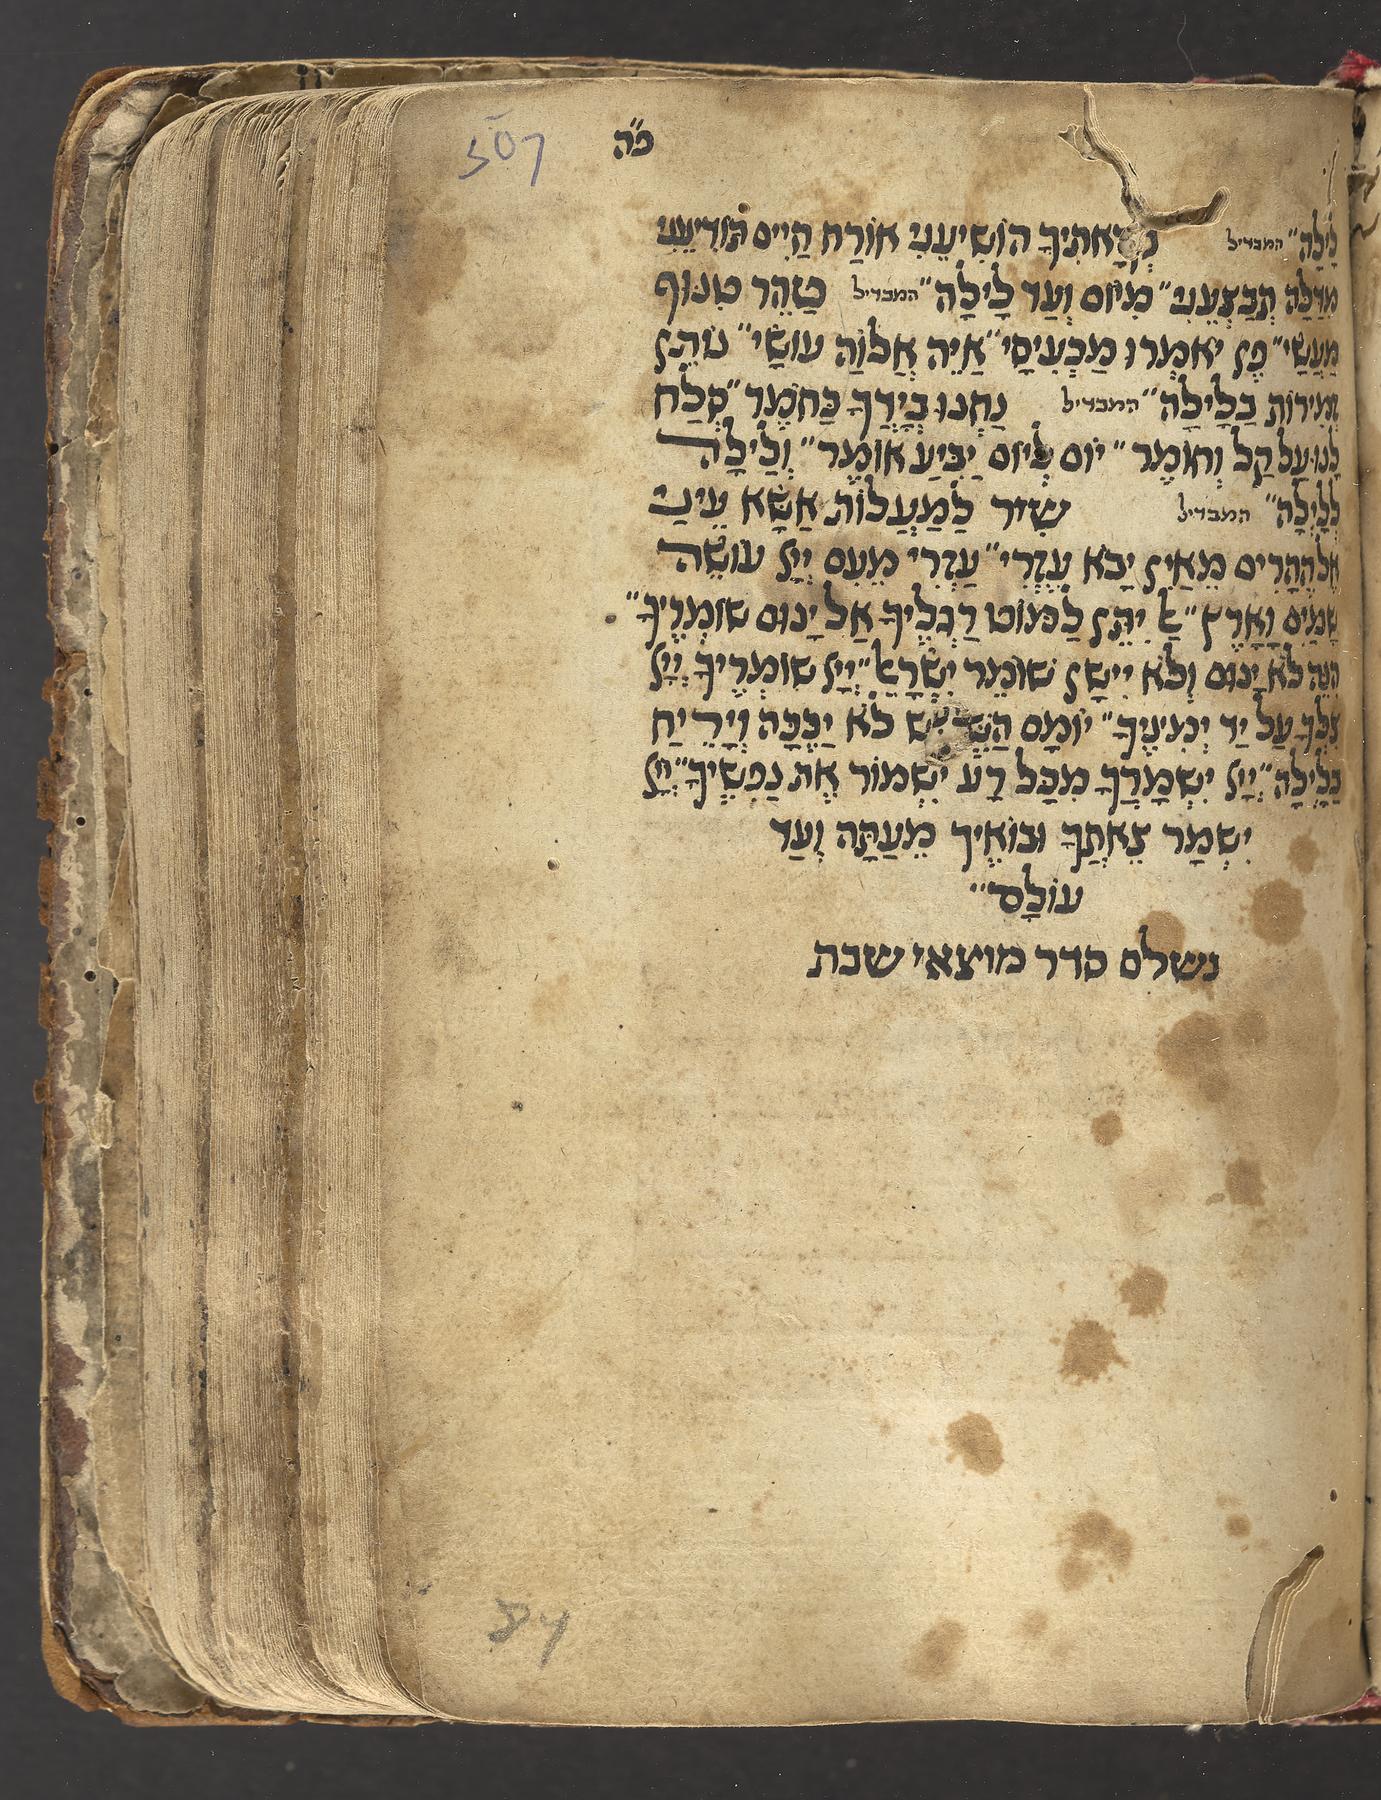 507
פ״ה
לַיְלָה״ המבדיל קְרָאתִיךָ הוֹשִׁיעֵנִי אוֹרַח חַיִים תּוֹדִיעֵנִי
מִדַּלָּה תְבַצְּעֵנִי״ מִיּוֹם וְעַד לַיְלָה״ המבדיל טַהֵר טִנּוּף
מַעֲשַׂי״ פֶּן יֹאמְרוּ מַכְעִיסַי״ אַיֵּה אֱלוֹהַּ עוֹשָׂי״ נוֹתֵן
זְמִירוֹת בַּלַּיְלָה״ המבדיל נַחְנוּ בְיָדְךָ כַּחֹמֶר״ סְלַח
לָנוּ עַל קַל וְחוֹמֶר״ יוֹם לְיוֹם יַבִּיעַ אוֹמֶר״ וְלַיְלָה
לְלַיְלָה״ המבדיל שִׁיר לַמַּעֲלוֹת אֶשָּׂא עֵינַי
אֶל הֶהָרִים מֵאַיִן יָבֹא עֶזְרִי״ עֶזְרִי מֵעִם יְיָ עוֹשֵׂה
שָׁמַיִם וָאָרֶץ״ אַל יִתֵּן לַמּוֹט רַגְלֶיךָ אַל יָנוּם שׁוֹמְרֶיךָ״
הִנֵּה לֹא יָנוּם וְלֹא יִישָׁן שׁוֹמֵר יִשְׂרָאֵל״ יְיָ שׁוֹמְרֶיךָ יְיָ
צִלְּךָ עַל יַד יְמִינֶיךָ״ יוֹמָם הַשֶּׁמֶשׁ לֹא יַכֶּכָּה וְיָרֵיחַ
בַּלָּיְלָה״ יְיָ יִשְׁמָרְךָ מִכָּל רָע יִשְׁמוֹר אֶת נַפְשֶׁיךָ״ יְיָ
יִשְׁמָר צֵאתְךָ וּבוֹאֶיךָ מֵעַתָּה וְעַד
עוֹלָם״
נשלם סדר מוצאי שבת
84